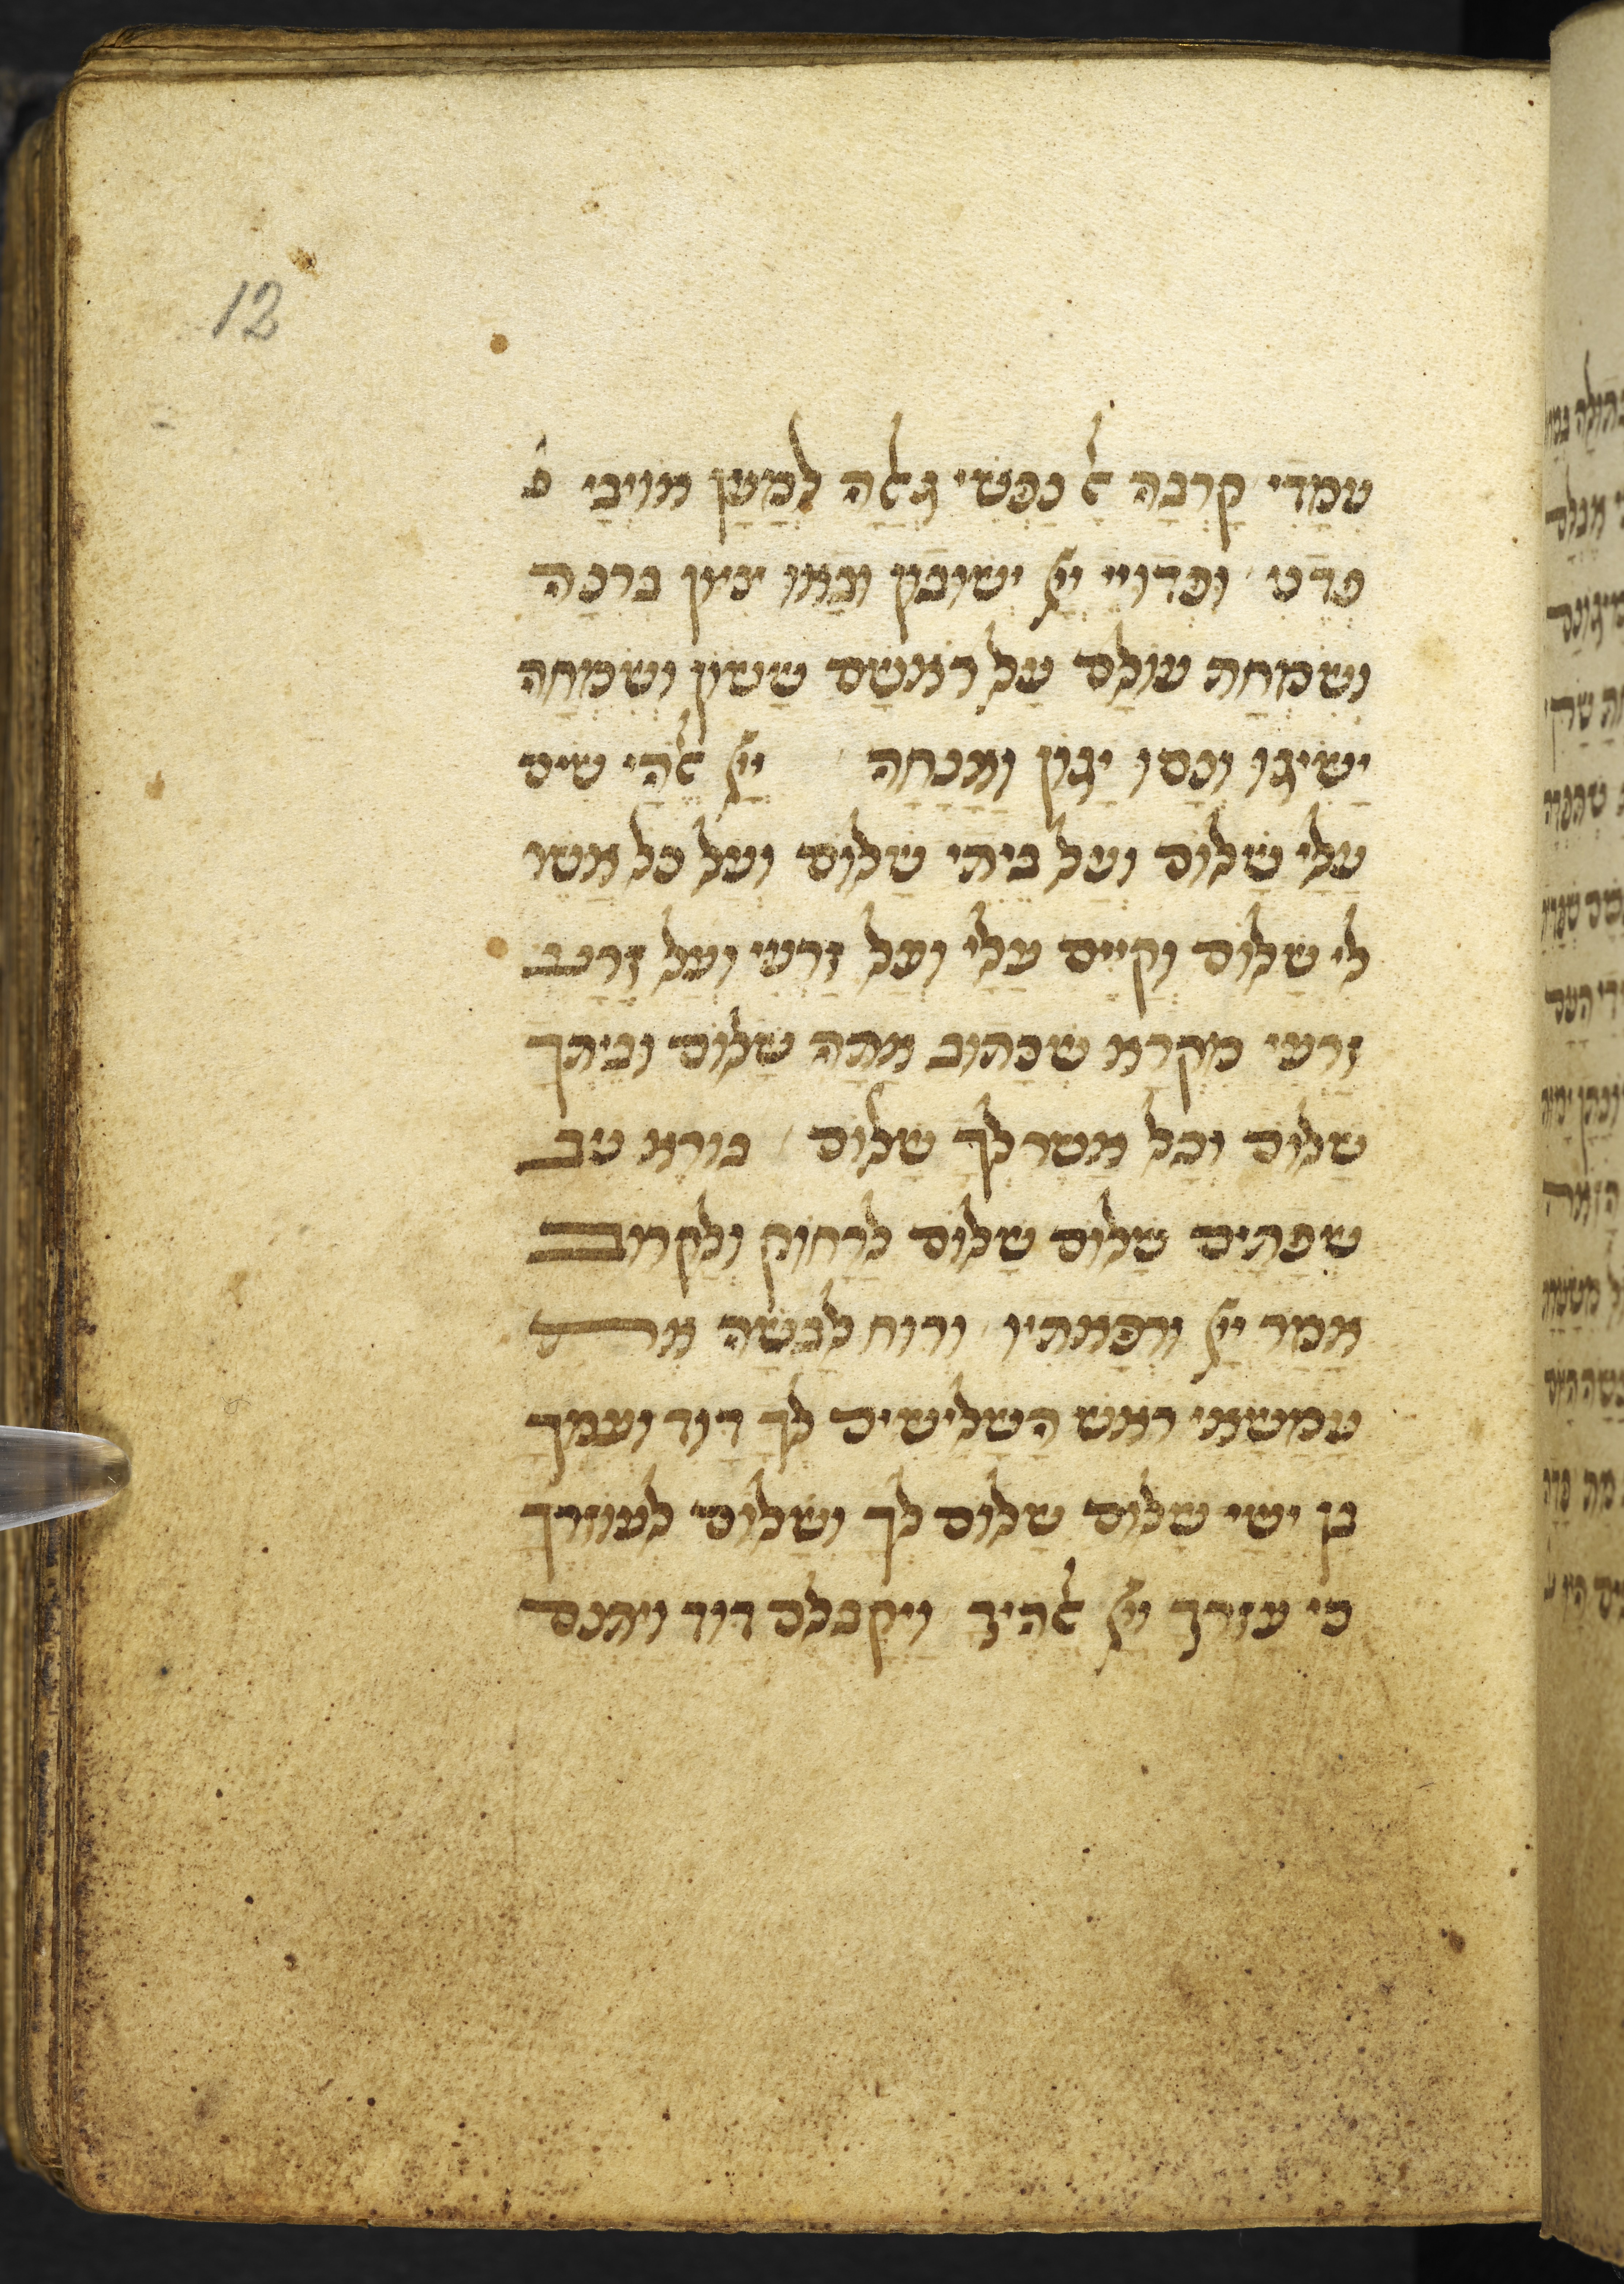 12
עמדי קרבה ﭏ נפשי גﭏה למען אויבי פ
פדני ופדויי ייי ישובון ובאו ציון ברנה
ושמחת עולם על ראשם ששון ושמחה
ישיגו ונסו יגון ואנחה ייי ﭏהי שים
עלי שלום ועל ביתי שלום ועל כל אשר
לי שלום וקיים עלי ועל זרעי ועל זרע
זרעי מקרא שכתוב אתה שלום וביתך
שלום וכל אשר לך שלום בורא ניב
שפתים שלום שלום לרחוק ולקרוב
אמר ייי ורפאתיו ורוח לבשה את
עמשאי ראש השלישים לך דוד ועמך
בן ישי שלום שלום לך ושלום לעוזרך
כי עזרך ייי ﭏהיך ויקבלם דוד ויתנם